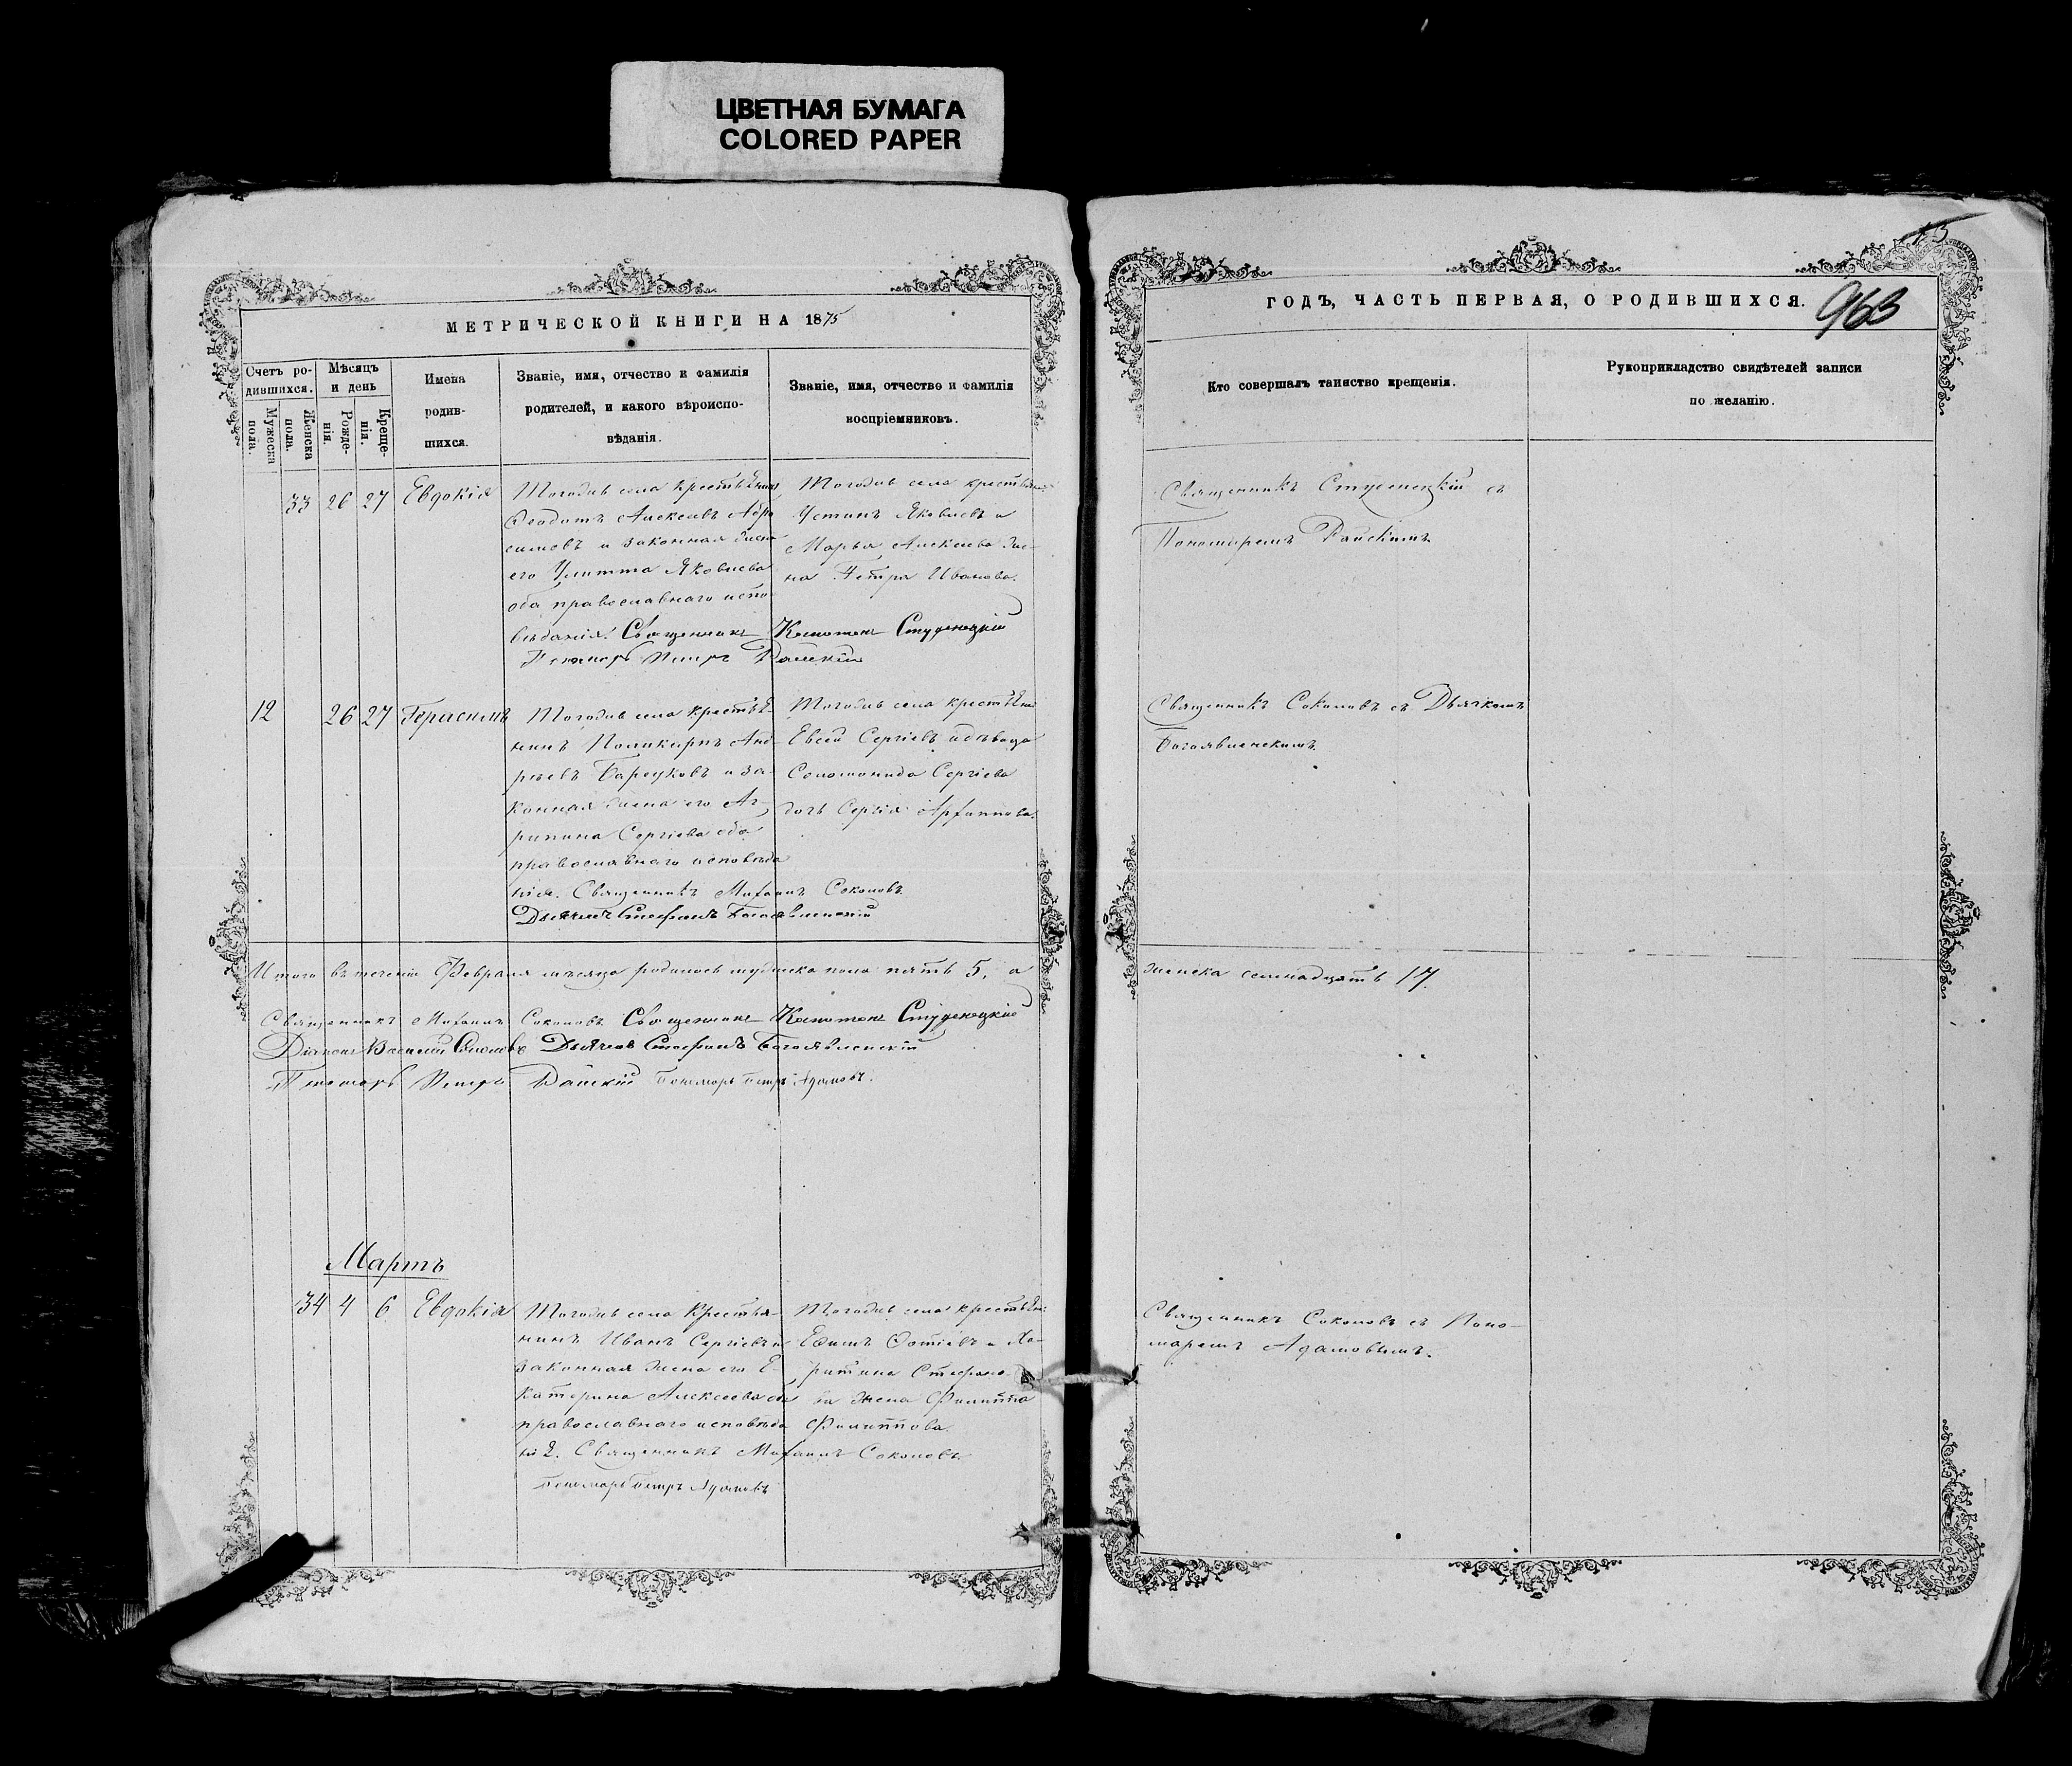 ЦВЕТНАЯ БУМАГА
COLORED PAPER
МЕТРИЧЕСКОЙ КНИГИ НА 1875
Счетъ ро-
дившихся.
Мужеска
пола.
Женска
пола.
Мѣсяцъ
и день
Рожде-
нія.
Креще-
нія.
Имена
родив-
шихся.
Званіе, имя, отчество и фамилія
родителей, и какого вѣроиспо-
вѣданія.
Званіе, имя, отчество и фамилія
воспріемниковъ.
33 26 27 Евдокія
Тогоже села крестьянинъ
Ѳеодотъ Алексѣевъ
и законная жена
его Улитта Яковлева
оба православнаго испо
вѣданія. Священникъ Капитонъ Студенецкій
Пономарь Петръ Райскій
Тогоже села крестьянинъ
Устинъ Яковлевъ и
Марья Алексѣева же-
на Петра Иванова.
12 26 27 Герасимъ
Тогоже села крестья
нинъ Поликарпъ Анд-
реевъ Барсуковъ и за-
конная жена его Аг-
рипина Сергіева оба
православнаго исповѣда
нія. Священникъ Михаилъ Соколовъ
Дьячекъ Стефанъ Богоявленскій
Тогоже села крестьянинъ
Евсей Сергіевъ и дѣвица
Соломонида Сергіева
дочь Сергія
Итого въ теченіи Февраля мѣсяца родилось мужеска пола пять 5, а
Священникъ Михаилъ Соколовъ Священникъ Капитонъ Студенецкій
Діаконъ Василій Соколовъ Дьячекъ Стефанъ Богоявленскій
Пономарь Петръ Райскій Пономарь Петръ Адамовъ.
Мартъ
34 4 6 Евдокія
Тогоже села Крестья-
нинъ Иванъ Сергіевъ и
законная жена его Е-
катерина Алексѣева оба
православнаго исповѣда
нія. Священникъ Михаилъ Соколовъ
Пономарь Петръ Адамовъ
Тогоже села крестьянинъ
Ефимъ Фотіевъ и Ха-
ритина Стефано-
ва жена Филиппа
Филиппова
15
ГОДЪ, ЧАСТЬ ПЕРВАЯ, О РОДИВШИХСЯ.
963
Кто совершалъ таинство крещенія.
Рукоприкладство свидѣтелей записи
по желанію.
Священникъ Студенецкій съ
Пономаремъ Райскимъ
Священникъ Соколовъ съ Дьячкомъ
Богоявленскимъ
женска семнадцать 17.
Священникъ Соколовъ съ Поно-
маремъ Адамовымъ.